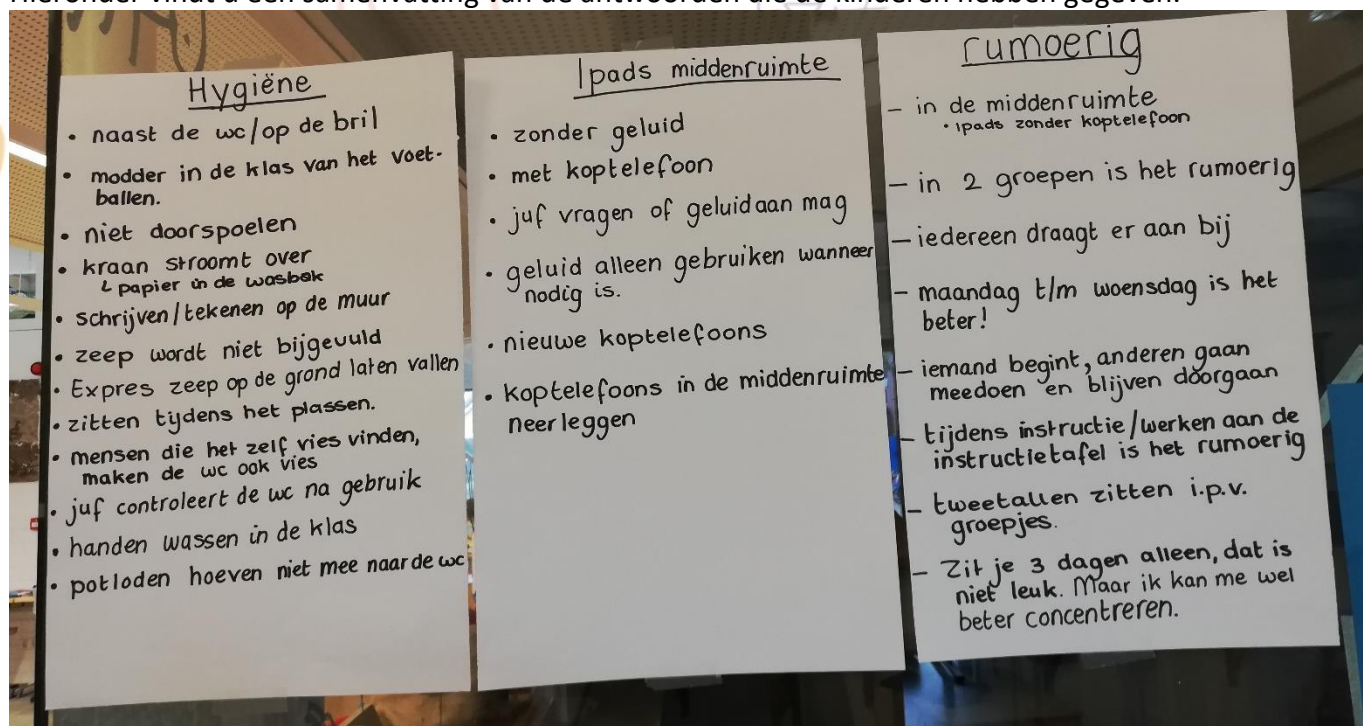 Hieronder vindt u een samenvatting van de antwoorden die de kinderen hebben gegeven.
Hygiëne
• naast de wc/op de bril
• modder in de klas van het voet-
ballen.
• niet doorspoelen
• kraan stroomt over
↳ papier in de wasbak
• schrijven/tekenen op de muur
• zeep wordt niet bijgevuld
• Expres zeep op de grond laten vallen
• zitten tijdens het plassen.
• mensen die het zelf vies vinden,
maken de wc ook vies
• juf controleert de wc na gebruik
• handen wassen in de klas
• potloden hoeven niet mee naar de wc
Ipads middenruimte
• zonder geluid
• met koptelefoon
• juf vragen of geluid aan mag
• geluid alleen gebruiken wanneer
nodig is.
• nieuwe koptelefoons
• koptelefoons in de middenruimte
neerleggen
rumoerig
– in de middenruimte
• ipads zonder koptelefoon
– in 2 groepen is het rumoerig
– iedereen draagt er aan bij
– maandag t/m woensdag is het
beter!
– iemand begint, anderen gaan
meedoen en blijven doorgaan
– tijdens instructie/werken aan de
instructietafel is het rumoerig
– tweetallen zitten i.p.v.
groepjes.
– Zit je 3 dagen alleen, dat is
niet leuk. Maar ik kan me wel
beter concentreren.